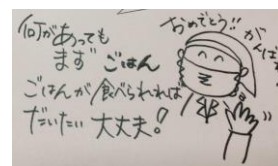 何があっても
まず ごはん
ごはんが食べられれば
だいたい 大丈夫!
おめでとう!
がんば